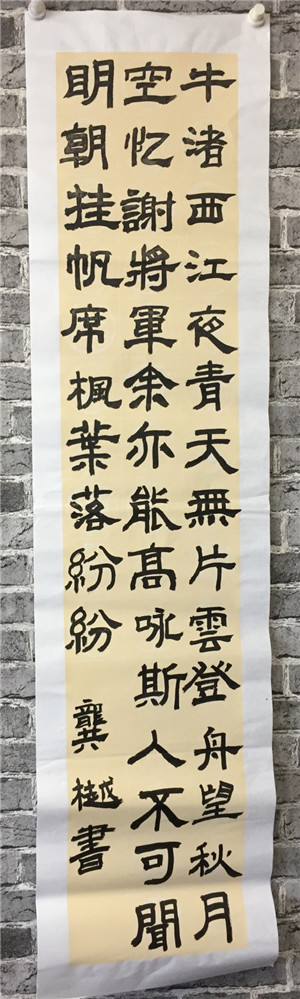 牛渚西江夜青天無片雲登舟望秋月
空忆謝將軍余亦能高咏斯人不可聞
明朝挂帆席楓葉落紛紛
龔樾書